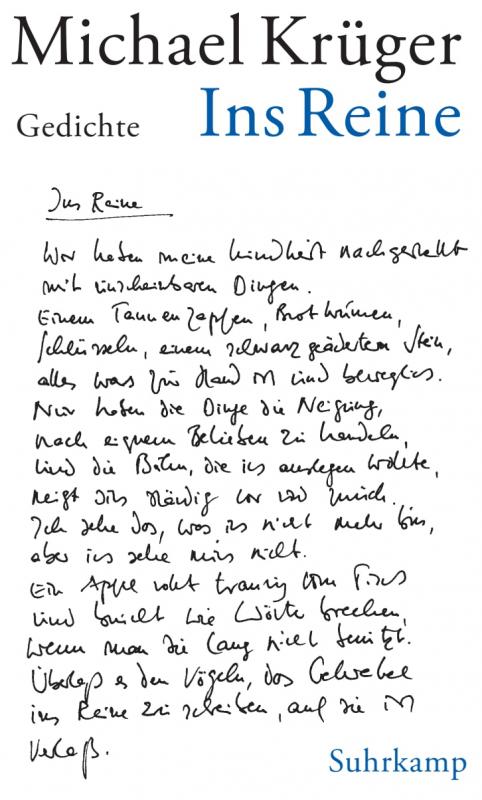 Michael Krüger
Gedichte
Ins Reine
Ins Reine
Wir haben meine Kindheit nachgestellt
mit unscheinbaren Dingen.
Einem Tannenzapfen, Brotkrumen,
Schlüsseln, einem schwarz geäderten Stein,
alles was zur Hand ist und beweglich.
Nur haben die Dinge die Neigung,
nach eignem Belieben zu handeln,
und die Bahn, die ich auslegen wollte,
neigt sich ständig vor und zurück.
Ich sehe das, was ich nicht mehr bin,
aber ich sehe mich nicht.
Ein Apfel rollt traurig vom Tisch
und bricht wie Wörter brechen,
wenn man sie lang nicht benutzt.
Überlaß es den Vögeln, das Geschreibe
ins Reine zu schreiben, auf die ist
Verlaß.
Suhrkamp